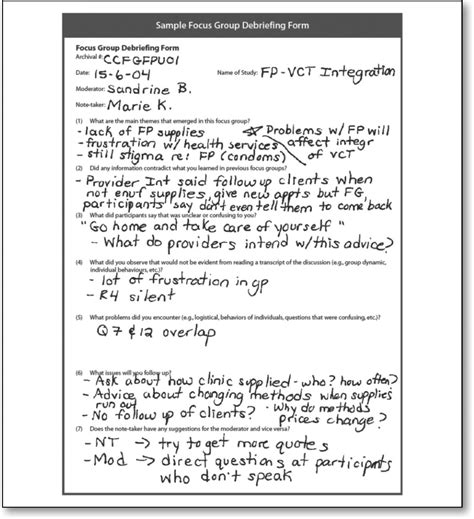 Sample Focus Group Debriefing Form
Focus Group Debriefing Form
Archival #: CCFGFPU01
Date: 15-6-04 Name of Study: FP-VCT Integration
Moderator: Sandrine B.
Note-taker: Marie K.
(1) What are the main themes that emerged in this focus group?
- lack of FP supplies ☆ Problems w/ FP will
- frustration w/ health services affect integr
- still stigma re: FP (condoms) of VCT
(2) Did any information contradict what you learned in previous focus groups?
- Provider Int said follow up clients when
not enuf supplies, give new appts but FG,
participants say don't even tell them to come back
(3) What did participants say that was unclear or confusing to you?
"Go home and take care of yourself"
- What do providers intend w/this advice?
(4) What did you observe that would not be evident from reading a transcript of the discussion (e.g., group dynamic,
individual behaviors, etc.)?
- lot of frustration in gp
- R4 silent
(5) What problems did you encounter (e.g., logistical, behaviors of individuals, questions that were confusing, etc.)?
Q 7 & 12 overlap
(6) What issues will you follow up?
- Ask about how clinic supplied - who? how often?
- Advice about changing methods when supplies
run out
- No follow up of clients? - Why do methods
prices change?
(7) Does the note-taker have any suggestions for the moderator and vice versa?
- NT → try to get more quotes
- Mod → direct questions at participants
who don't speak